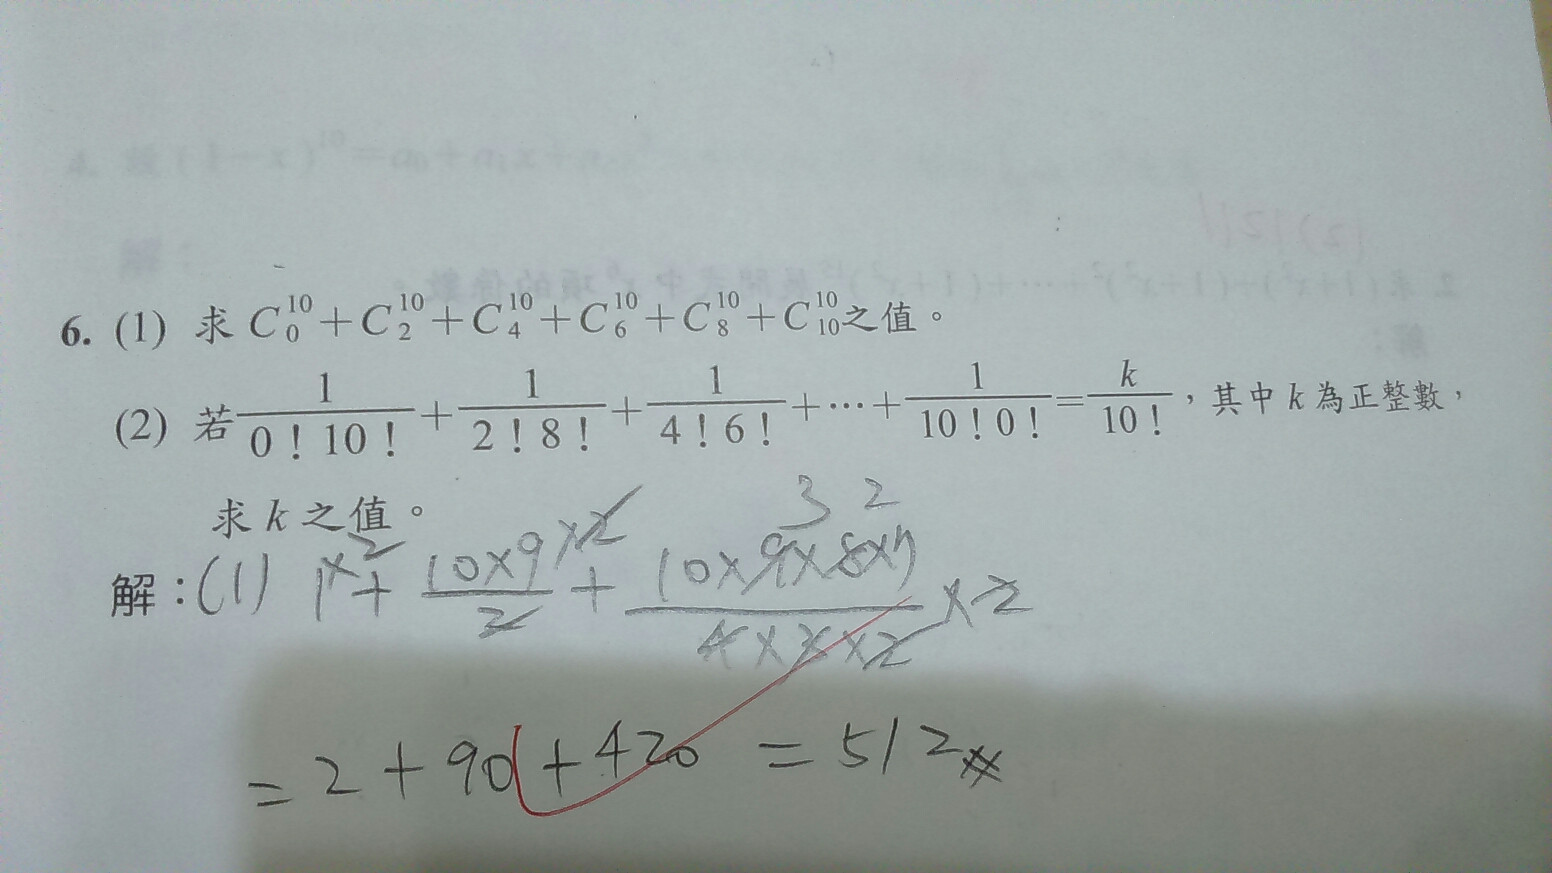 6. (1) 求 C₀¹⁰+C₂¹⁰+C₄¹⁰+C₆¹⁰+C₈¹⁰+C₁₀¹⁰之值。
(2) 若 1/(0!10!) + 1/(2!8!) + 1/(4!6!) + ⋯ + 1/(10!0!) = k/10!,其中 k 為正整數,
求 k 之值。
解:(1) 1×2 + (10×9)/2 ×2 + (10×9×8×7)/(4×3×2) ×2
3 2
= 2 + 90 + 420 = 512